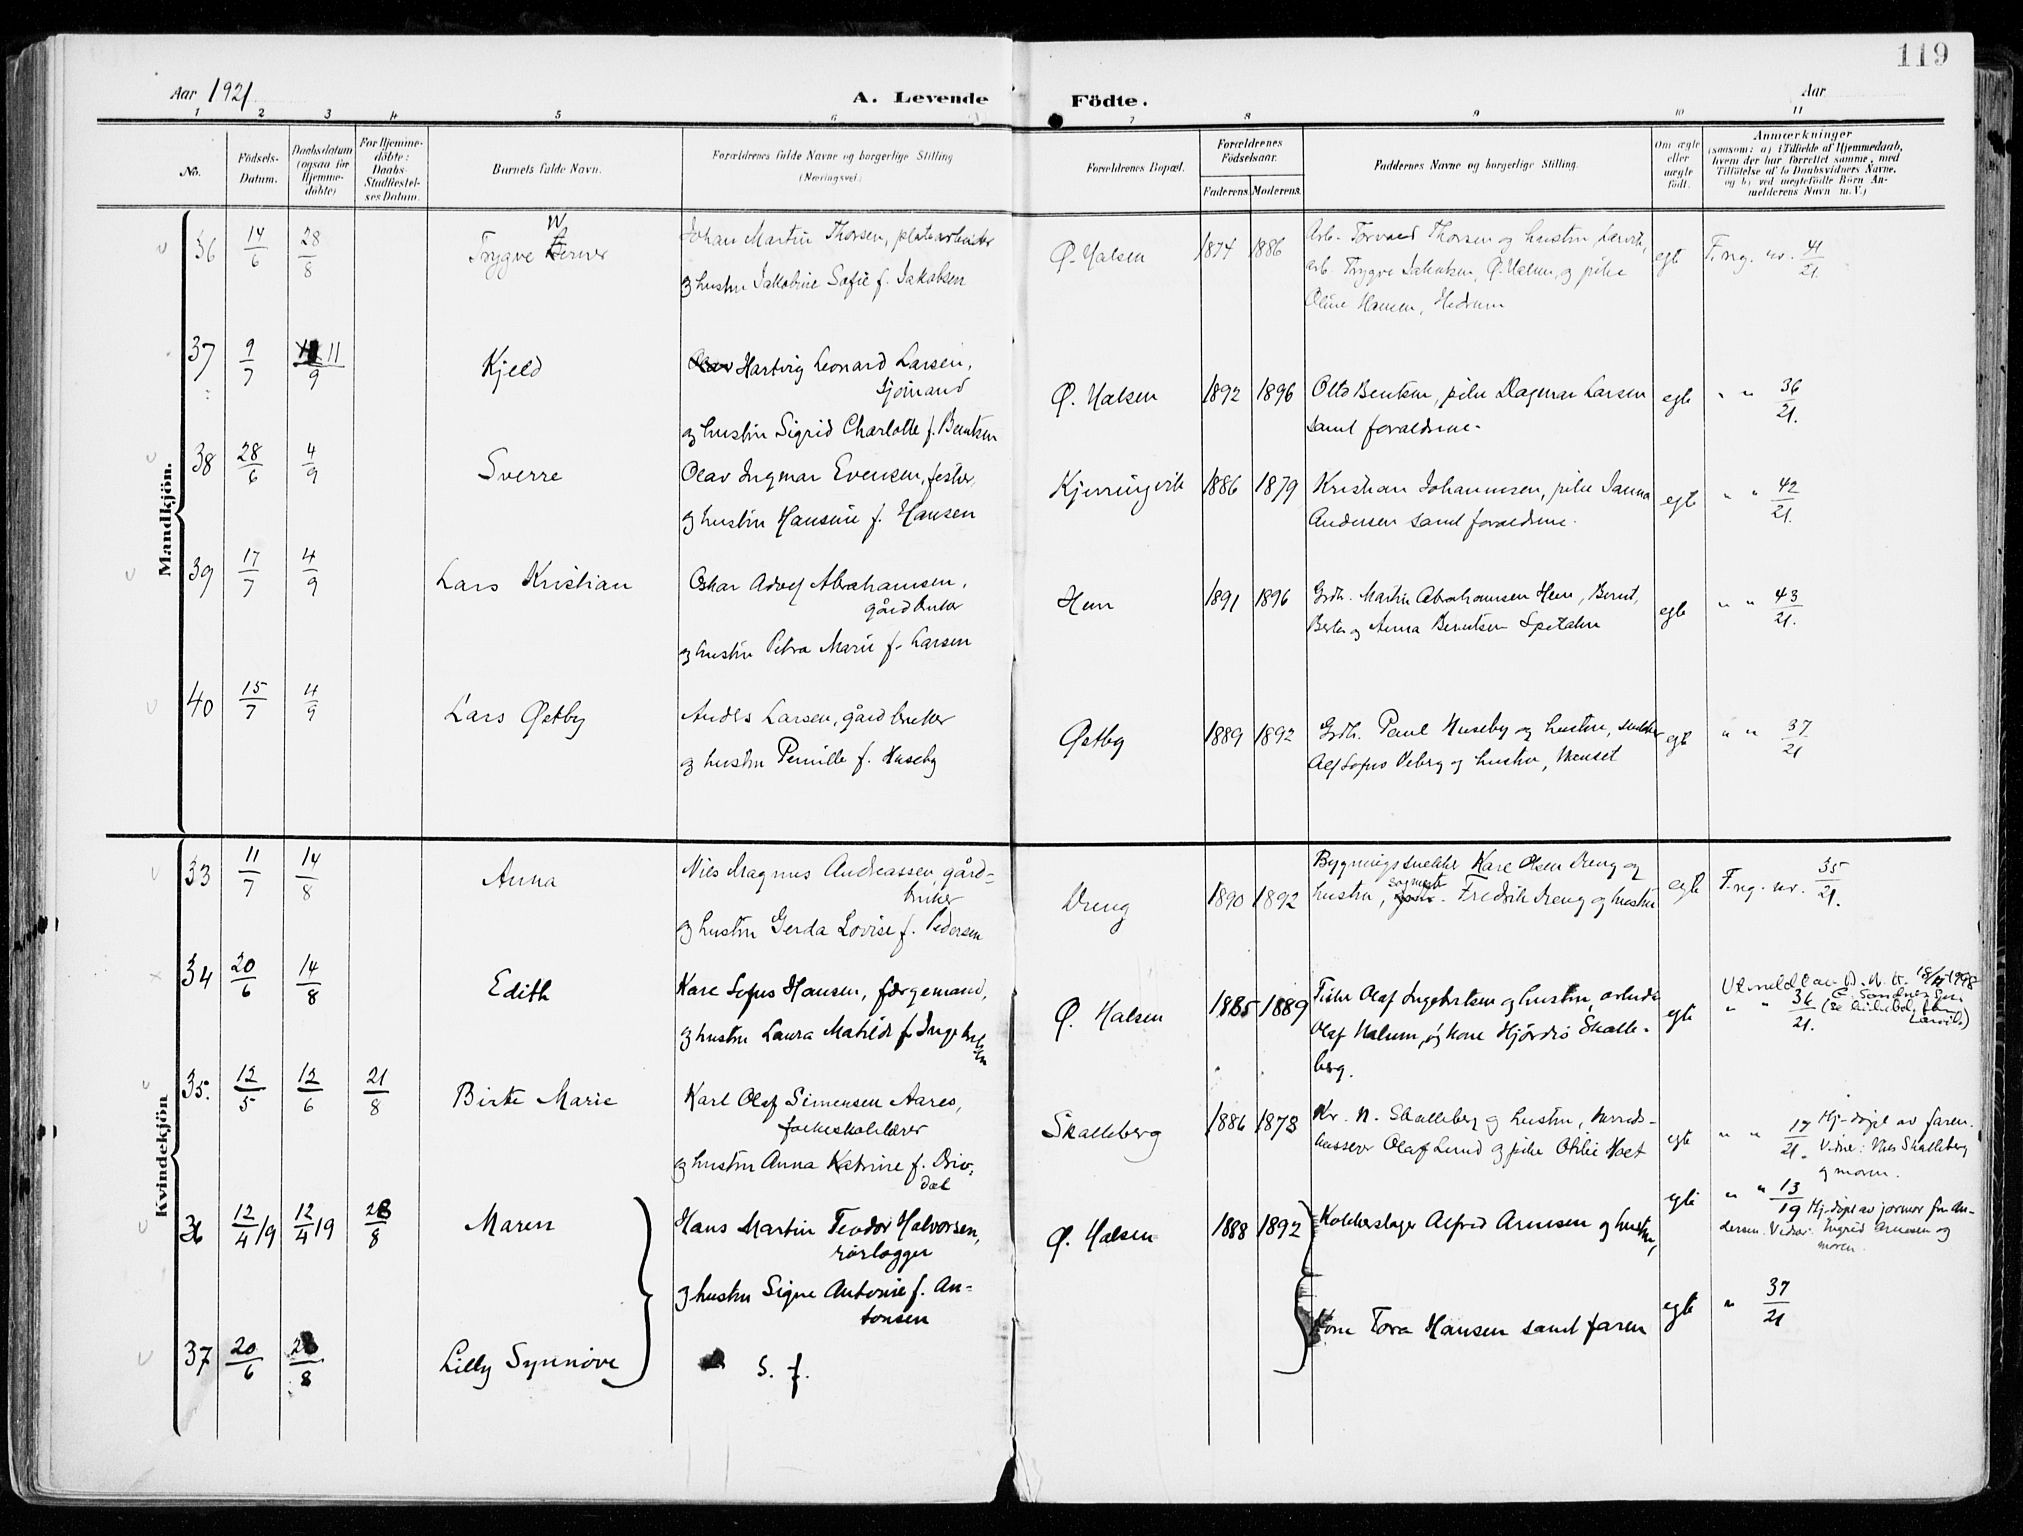 119
Aar 1921
A. Levende Födte.
Aar
1 2 3 4 5 6 7 8 9 10 11
No.
Födsels-Datum.
Daabsdatum (ogsaa for Hjemme-döbte)
For Hjemme-döbte: Daabs-Stadfæstel-ses Datum.
Barnets fulde Navn.
Forældrenes fulde Navne og borgerlige Stilling (Næringsvei.)
Forældrenes Bopæl.
Forældrenes Födselsaar.
Faderens. Moderens.
Faddernes Navne og borgerlige Stilling.
Om ægte eller uægte födt.
Anmærkninger
(saasom: a) i Tilfælde af Hjemmedaab,
hvem der har forrettet samme, med
Tilföielse af to Daabsvidners Navne,
og b) ved uegtefödte Börn An-
melderens Navn m. V.)
Mandkjön.
36 14/6 28/8 Trygve Werner
Johan Martin Thorsen, platearbeider
og hustru Jakobine Sofie f. Jakobsen
Ø. Halsen 1874 1886
Arb. Torvald Thorsen og hustru, Larvik,
arb. Trygve Jakobsen, Ø. Halsen, og pike
Oline Hansen, Hedrum
egte F.ng. nr. 41/21
37 9/7 11/9 Kjeld
Olav Hartvig Leonard Larsen,
sjømand
og hustru Sigrid Charlotte f. Bentsen
Ø. Halsen 1892 1896
Otto Bentsen, pike Dagmar Larsen
samt forældrene.
egte " " 36/21.
38 28/6 4/9 Sverre
Olav Ingmar Evensen, fisker,
og hustru Hansine f. Hansen
Kjerringvik 1886 1879
Kristian Johannesen, pike Janna
Andersen samt forældrene.
egte " " 42/21.
39 17/7 4/9 Lars Kristian
Oskar Adolf Abrahamsen,
gårdbruker
og hustru Petra Marie f. Larsen
Hem 1891 1896
Grdbr. Martin Abrahamsen Hem, Bernt,
Berta og Anna Berntsen
egte " " 43/21.
40 15/7 4/9 Lars Østby
Anders Larsen, gårdbruker
og hustru Pernille f. Huseby
Østby 1889 1892
Grdbr. Paul Huseby og hustru, snekker
Alf Sofus Viberg og hustru,
egte " " 37/21
Kvindekjön
33 11/7 14/8 Anna
Nils Magnus Andreassen gård-
bruker
og hustru Gerda Lovise f. Pedersen
Dreng 1890 1892
Bygningssnekker Kare Olsen Dreng og
hustru, Fredrik Dreng og hustru
egte F.ng. nr. 35/21.
34 20/6 14/8 Edith
Kare Sofus Hansen, færgemand,
og hustru Laura Matilde f. Ingebretsen
Ø. Halsen 1885 1889
Fisker Olaf Ingebretsen og hustru, arbeider
Olaf Halum, og kone Hjørdis Skalle-
berg.
egte " " 36/21.
Utmeldt av D.N.K. 18/4 1998
35. 12/5 12/6 21/8 Birte Marie
Karl Olaf Simensen Aares,
folkeskolelærer
og hustru Anna Katrine f. Driv-
dal
Skalleberg 1886 1878
Kr. N. Skalleberg og hustru,
Olaf Lund og pike Otilie Hoet
egte " " 17/21. Hj.døpt av faren.
Vidner: Nils Skalleberg
og moren.
36 12/4 19 12/4 19 28/8 Maren
Hans Martin Teodor Halvorsen,
rørlægger
og hustru Signe Antonie f. An-
tonsen
Ø. Halsen 1888 1892
Kobberslager Alfred Arnesen og hustru,
egte " " 13/19 Hj.døpt av jormor fru An-
dersen. Vidner: Ingrid Arnesen og
moren.
37 20/6 28/8 Lilly Synnøve
s. f.
kone Tora Hansen samt faren
egte " 37/21